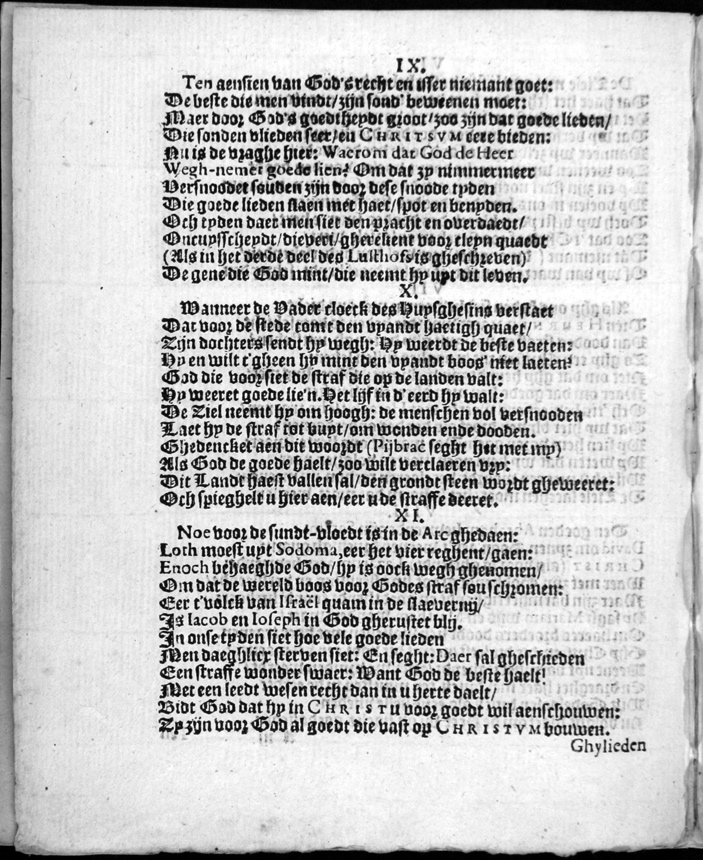 IX.
Ten aensien van God's recht en isser niemant goet:
De beste die men vindt/zijn sond' beweenen moet:
Maer door God's goedtheydt groot/zoo zijn dat goede lieden/
Die sonden vlieden seer/en CHRITSVM eere bieden:
Nu is de vraghe hier: Waerom dat God de Heer
Wegh-nemet goede lien? Om dat zy nimmermeer
Versnoodet souden zijn door dese snoode tyden
Die goede lieden slaen met haet/spot en benyden.
Och tyden daer men siet den pracht en overdaedt/
Oncuysscheydt/dieveri/gherekent voor cleyn quaedt
(Als in het derde deel des Lusthofs is gheschreven)
De gene die God mint/die neemt hy uyt dit leven.
X.
Wanneer de Vader cloeck des Huysghesins verstaet
Dat voor de stede comt den vyandt haetigh quaet/
Zijn dochters sendt hy wegh: Hy weerdt de beste vaeten:
Hy en wilt t'gheen hy mint den vyandt boos' niet laeten?
God die voor siet de straf die op de landen valt:
Hy weeret goede lie'n. Het lijf in d'eerd hy walt:
De Ziel neemt hy om hoogh: de menschen vol versnooden
Laet hy de straf tot buyt/om wonden ende dooden.
Ghedencket aen dit woordt (Pijbrac seght het met my)
Als God de goede haelt/zoo wilt verclaeren vry:
Dit Landt haest vallen sal/den grondt steen wordt gheweeret:
Och spieghelt u hier aen/eer u de straffe deeret.
XI.
Noe voor de sundt-vloedt is in de Arc ghedaen:
Loth moest uyt Sodoma, eer het vier reghent/gaen:
Enoch behaeghde God/hy is oock wegh ghenomen/
Om dat de wereld boos voor Godes straf sou schromen:
Eer t'volck van Israël quam in de slaevernij/
Is Iacob en Ioseph in God gherustet blij.
In onse tyden siet hoe vele goede lieden
Men daeghlicx sterven siet: En seght: Daer sal gheschieden
Een straffe wonder swaer: Want God de beste haelt!
Met een leedt wesen recht dan in u herte daelt/
Bidt God dat hy in CHRISTU voor goedt wil aenschouwen:
Zy zijn voor God al goedt die vast op CHRISTVM bouwen.
Ghylieden